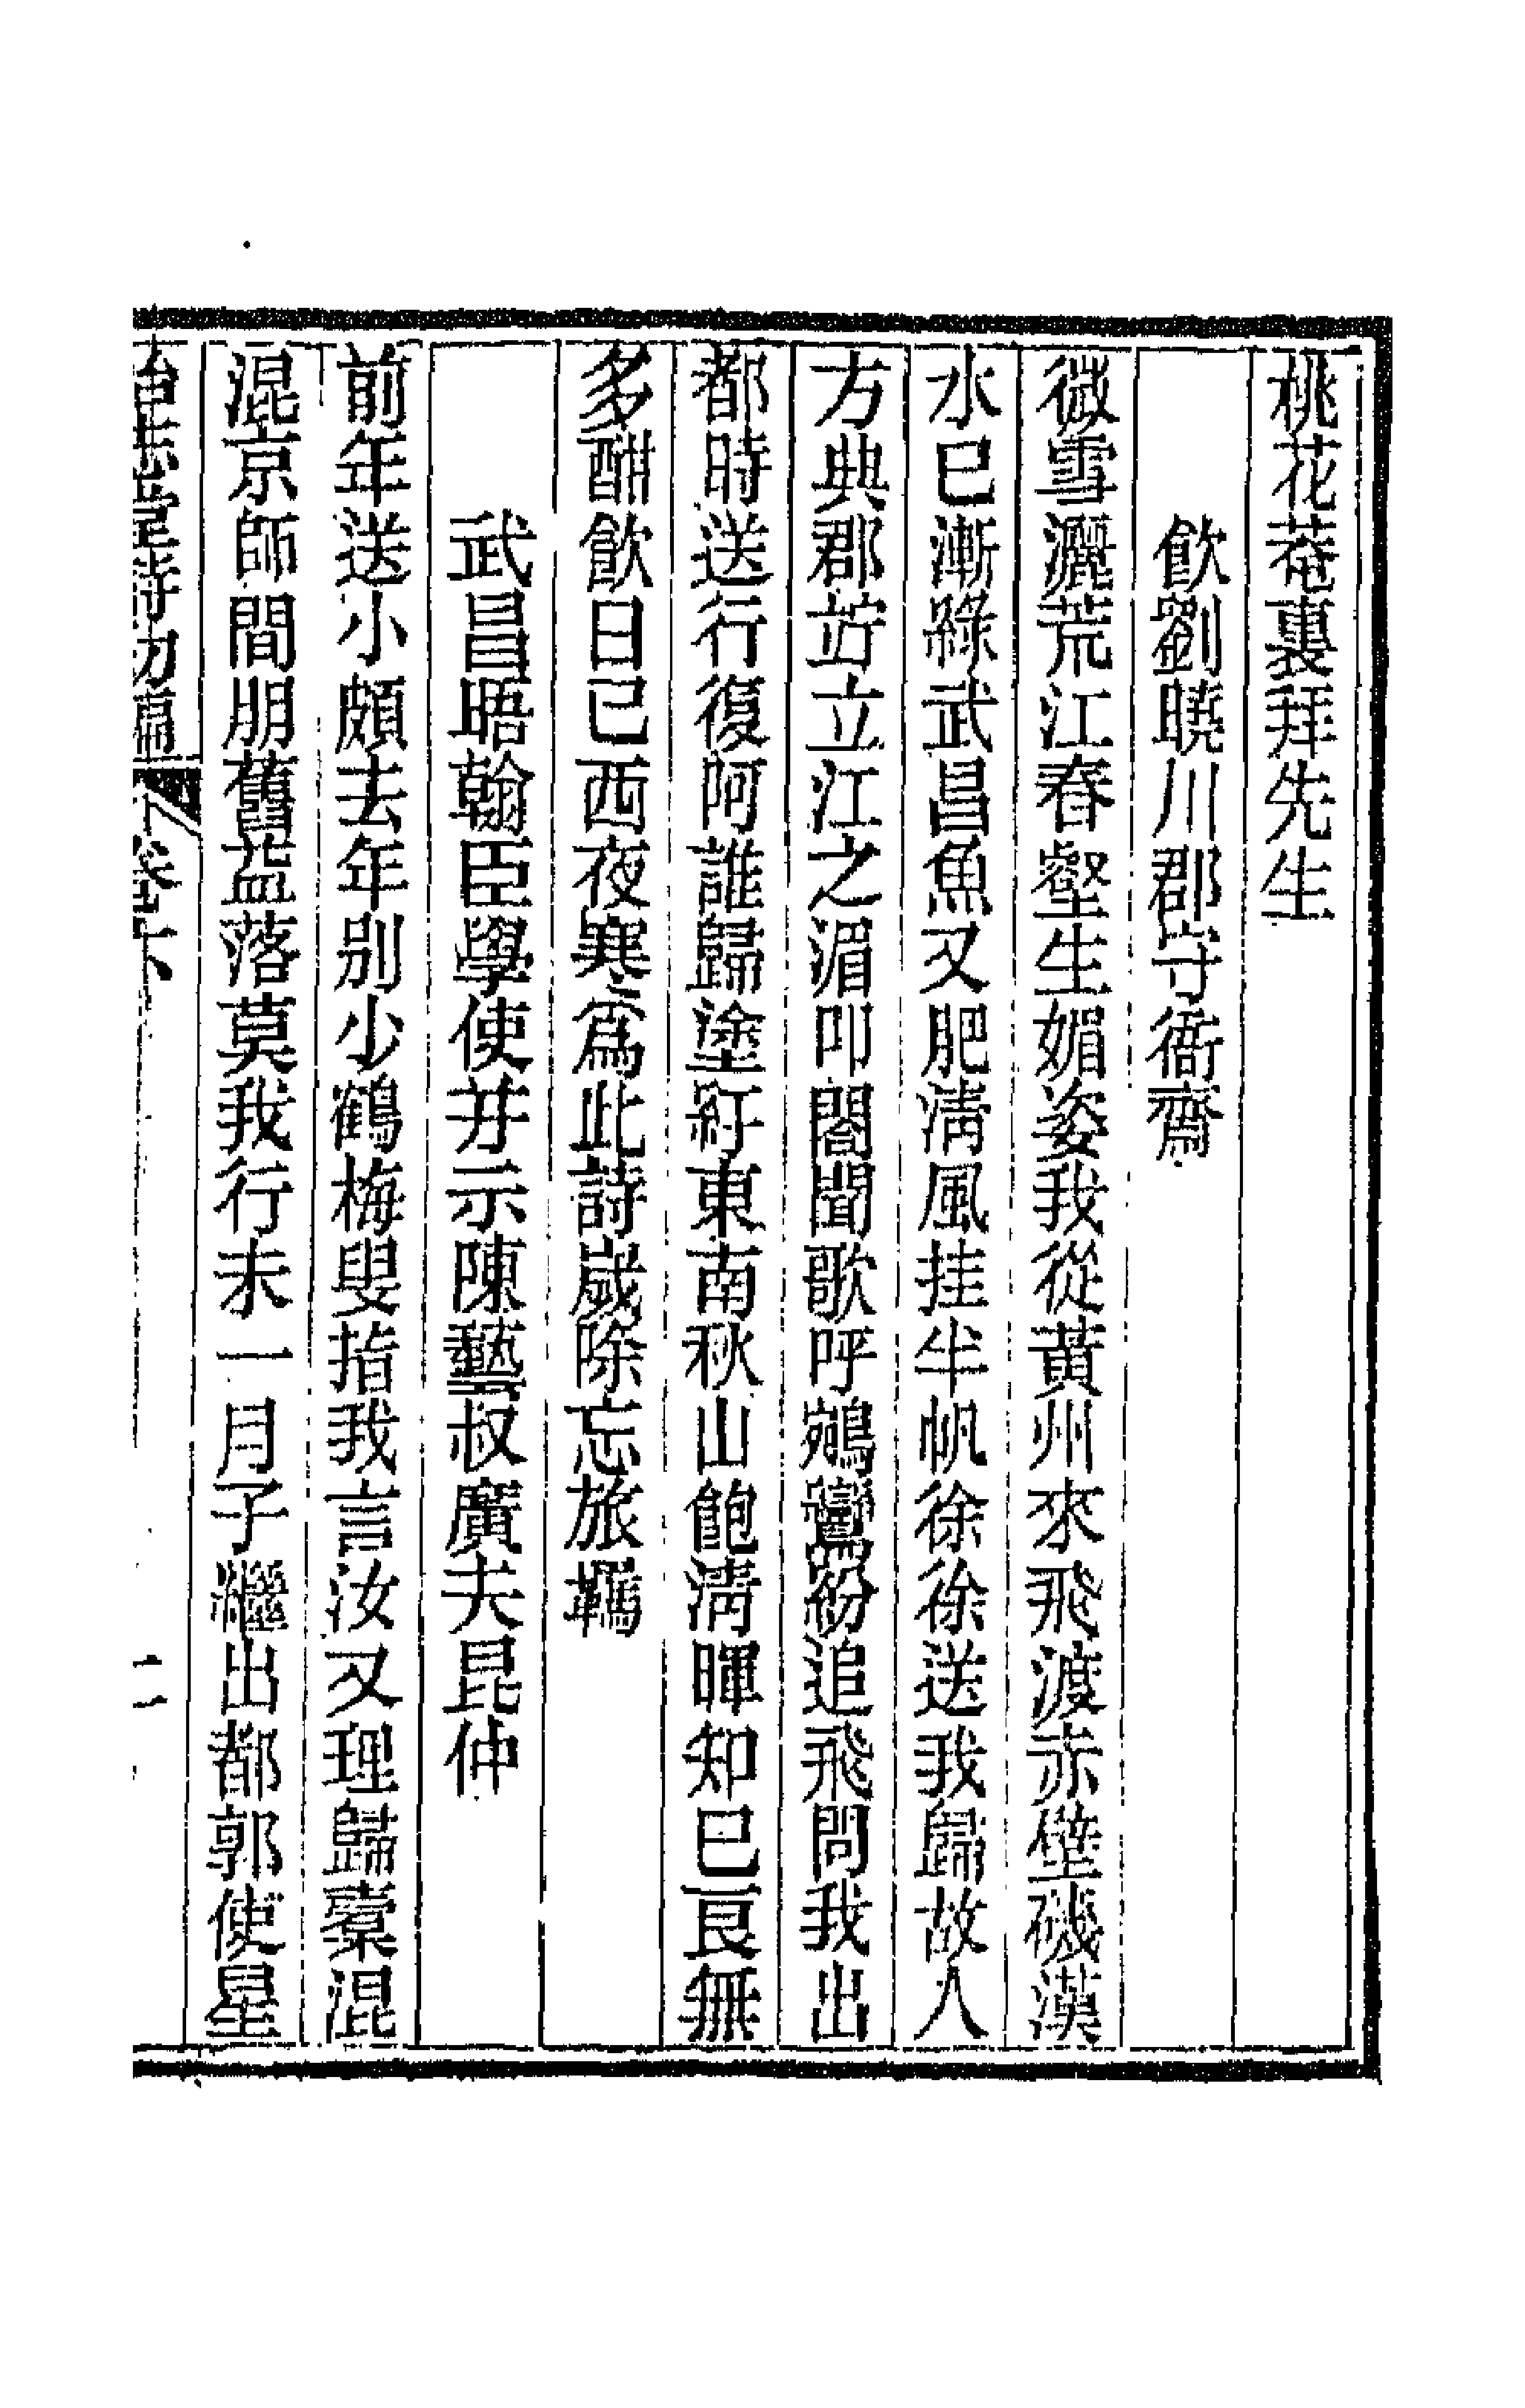 桃花菴裏拜先生
飲劉曉川郡守衙齋
微雪灑荒江春壑生媚姿我從黃州來飛渡赤壁磯漢
水已漸綠武昌魚又肥淸風挂半帆徐徐送我歸故人
方典郡竚立江之湄叩閽聞歌呼鵷鸞紛追飛問我出
都時送行復阿誰歸塗紆東南秋山飽淸暉知已良無
多酣飮日已西夜寒爲此詩歲除忘旅羈
武昌晤翰臣學使并示陳藝叔廣夫昆仲
前年送小頗去年別少鶴梅叟指我言汝又理歸橐混
混京師間朋舊益落莫我行未一月子繼出都郭使星
詩初編 卷下 二